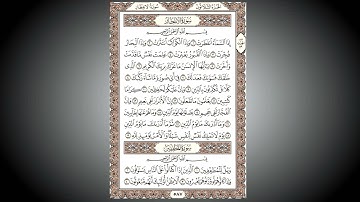 سُورَةُ الانفِطَارِ
الجُزْءُ الثَّلَاثُونَ
سُورَةُ الانفِطَارِ
بِسْمِ ٱللَّهِ ٱلرَّحْمَٰنِ ٱلرَّحِيمِ
إِذَا ٱلسَّمَآءُ ٱنفَطَرَتْ ١ وَإِذَا ٱلْكَوَاكِبُ ٱنتَثَرَتْ ٢ وَإِذَا ٱلْبِحَارُ
فُجِّرَتْ ٣ وَإِذَا ٱلْقُبُورُ بُعْثِرَتْ ٤ عَلِمَتْ نَفْسٌ مَّا قَدَّمَتْ
وَأَخَّرَتْ ٥ يَٰٓأَيُّهَا ٱلْإِنسَٰنُ مَا غَرَّكَ بِرَبِّكَ ٱلْكَرِيمِ ٦ ٱلَّذِى
خَلَقَكَ فَسَوَّىٰكَ فَعَدَلَكَ ٧ فِىٓ أَىِّ صُورَةٍ مَّا شَآءَ رَكَّبَكَ ٨
كَلَّا بَلْ تُكَذِّبُونَ بِٱلدِّينِ ٩ وَإِنَّ عَلَيْكُمْ لَحَٰفِظِينَ ١٠ كِرَامًا
كَٰتِبِينَ ١١ يَعْلَمُونَ مَا تَفْعَلُونَ ١٢ إِنَّ ٱلْأَبْرَارَ لَفِى نَعِيمٍ ١٣ وَإِنَّ
ٱلْفُجَّارَ لَفِى جَحِيمٍ ١٤ يَصْلَوْنَهَا يَوْمَ ٱلدِّينِ ١٥ وَمَا هُمْ عَنْهَا
بِغَآئِبِينَ ١٦ وَمَآ أَدْرَىٰكَ مَا يَوْمُ ٱلدِّينِ ١٧ ثُمَّ مَآ أَدْرَىٰكَ مَا يَوْمُ ٱلدِّينِ
١٨ يَوْمَ لَا تَمْلِكُ نَفْسٌ لِّنَفْسٍ شَيْـًٔا وَٱلْأَمْرُ يَوْمَئِذٍ لِّلَّهِ ١٩
سُورَةُ المُطَفِّفِينَ
بِسْمِ ٱللَّهِ ٱلرَّحْمَٰنِ ٱلرَّحِيمِ
وَيْلٌ لِّلْمُطَفِّفِينَ ١ ٱلَّذِينَ إِذَا ٱكْتَالُوا۟ عَلَى ٱلنَّاسِ يَسْتَوْفُونَ ٢
وَإِذَا كَالُوهُمْ أَو وَّزَنُوهُمْ يُخْسِرُونَ ٣ أَلَا يَظُنُّ أُو۟لَٰٓئِكَ أَنَّهُم مَّبْعُوثُونَ ٤
٥٨٧